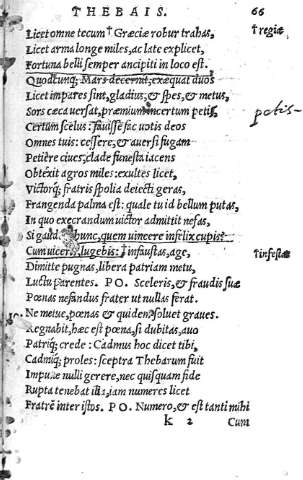 THEBAIS. 66
Licet omne tecum † Græciæ robur trahas, † regiæ
Licet arma longe miles, ac late explicet,
Fortuna belli semper ancipiti in loco est.
Quodcunq; Mars decernit, exæquat duos
Licet impares sint, gladius, & spes, & metus,
Sors cæca versat, præmium incertum petis, potis
Certum scelus: fauisse fac uotis deos
Omnes tuis: cessere, & auersi fugam
Petiere ciues; clade funesta iacens
Obtexit agros miles: exultes licet,
Victorq; fratris spolia deiecti geras,
Frangenda palma est: quale tu id bellum putas,
In quo execrandum uictor admittit nefas,
Si gaudet? hunc, quem uincere infelix cupis,
Cum uiceris, lugebis: † infaustas, age, † infestas
Dimitte pugnas, libera patriam metu,
Luctu parentes. PO. Sceleris, & fraudis suæ
Pœnas nefandus frater ut nullas ferat.
Ne metue, pœnas & quidem soluet graues.
Regnabit, hæc est pœna, si dubitas, auo
Patriq; crede: Cadmus hoc dicet tibi,
Cadmiq; proles: sceptra Thebarum fuit
Impune nulli gerere, nec quisquam fide
Rupta tenebat illa, iam numeres licet
Fratrẽ inter istos. PO. Numero, & est tanti mihi
k 2 Cum